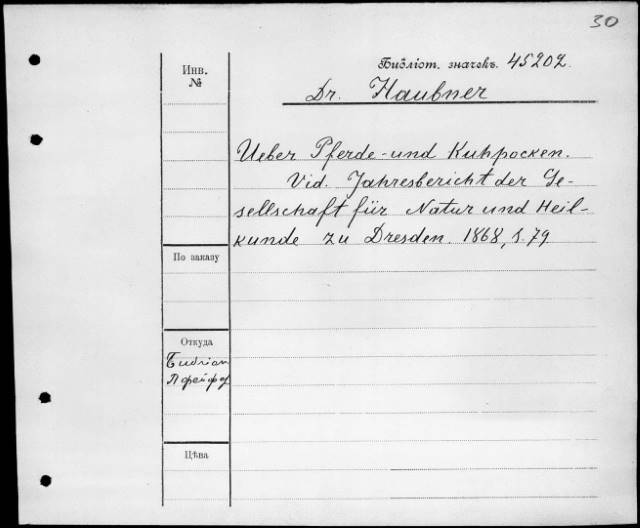 30
Библіот. значекъ. 45202.
Инв.
№
Dr. Haubner
Ueber Pferde- und Kuhpocken.
Vid. Jahresbericht der Ge-
sellschaft für Natur und Heil-
kunde zu Dresden. 1868, S. 79.
По заказу
Откуда
Пфейфер
Цѣна